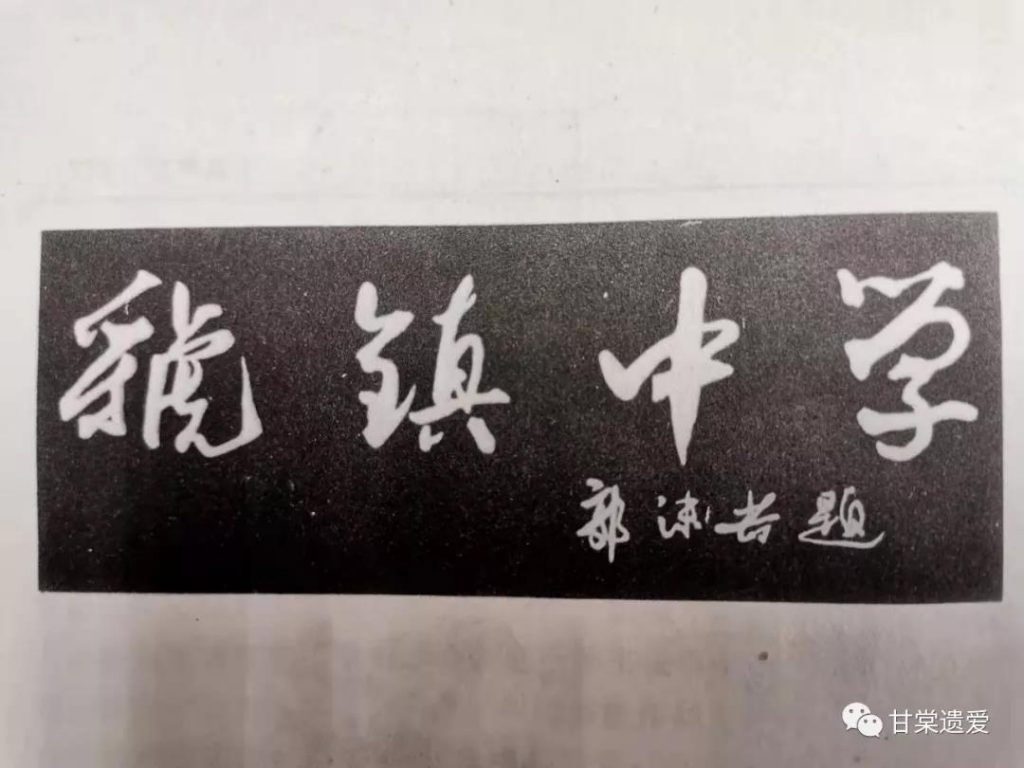 虢鎮中学
郭沫若題
甘棠遗爱